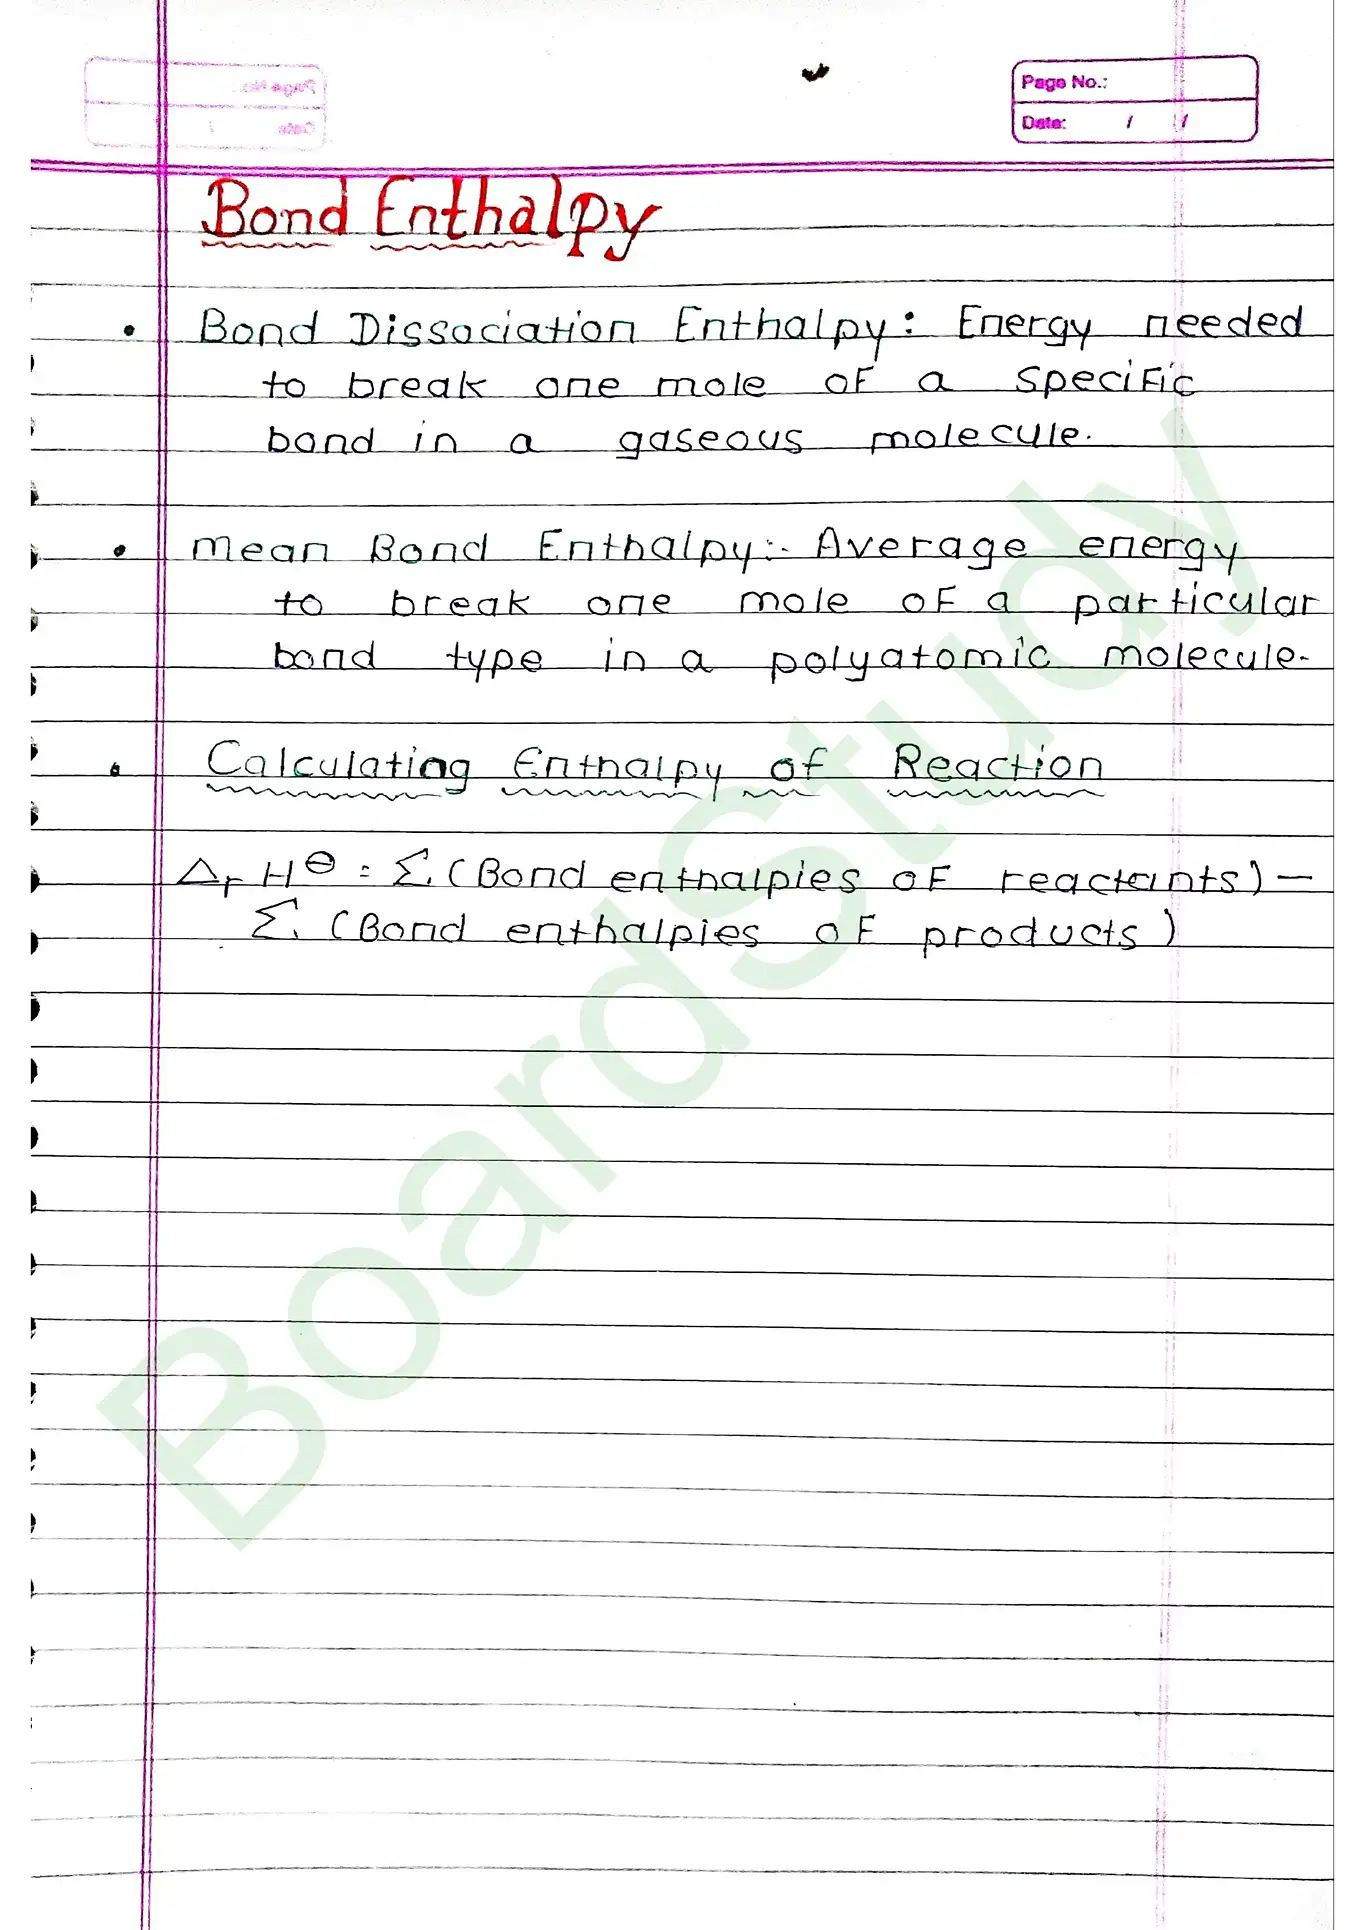 Page No.:
Date: / /
Bond Enthalpy
• Bond Dissociation Enthalpy: Energy needed
to break one mole of a specific
bond in a gaseous molecule.
• Mean Bond Enthalpy:- Average energy
to break one mole of a particular
bond type in a polyatomic molecule.
• Calculating Enthalpy of Reaction
ΔrH⊖ = Σ (Bond enthalpies of reactants) –
Σ (Bond enthalpies of products)
BoardStudy